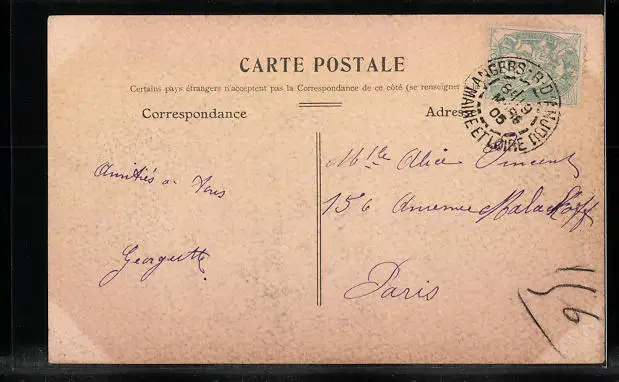 CARTE POSTALE
Certains pays étrangers n'acceptent pas la Correspondance de ce côté (se renseigner
Correspondance
Adres
ANGERS-R.D'ANJOU
MAINE ET LOIRE
Amitiés a tous
Georgette
Mlle Alice Vincent
156 Avenue Malakoff
Paris